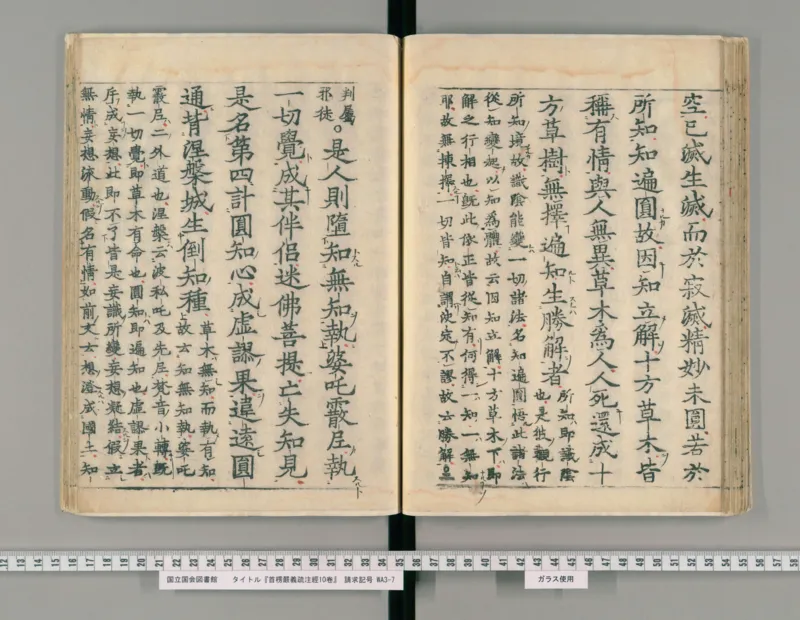 空已滅生滅而於寂滅精妙未圓若於
所知知遍圓故因知立解十方草木皆
稱有情與人無異草木為人人死還成十
方草樹無擇遍知生勝解者
所知即識陰
也是彼觀行
所知境故識陰能變一切諸法名知遍圓悟此諸法
從知變起以知為體故云因知立解十方草木下即
解之行相也旣此依正皆從知有何得一知一無知
耶故無揀擇一切皆知自謂決定不謬故云勝解
判屬
邪徒
○是人則墮知無知執婆吒霰尼執
一切覺成其伴侶迷佛菩提亡失知見
是名第四計圓知心成虛謬果違遠圓
通背涅槃城生倒知種
草木無知而執有知
故云知無知執婆吒
霰尼二外道也涅槃云波私吒及先尼梵音小轉既
執一切覺即草木有命也圓知即遍知也虛謬果者
斥成妄想此即不了皆是妄識所變妄想凝結假立
無情妄想流動假名有情如前文云想澄成國土知
12 13 14 15 16 17 18 19 20 21 22 23 24 25 26 27 28 29 30 31 32 33 34 35 36 37 38 39 40 41 42 43 44 45 46 47 48 49 50 51 52 53 54 55 56 57 58
国立国会図書館 タイトル『首楞嚴義疏注經10巻』 請求記号 WA3-7
ガラス使用